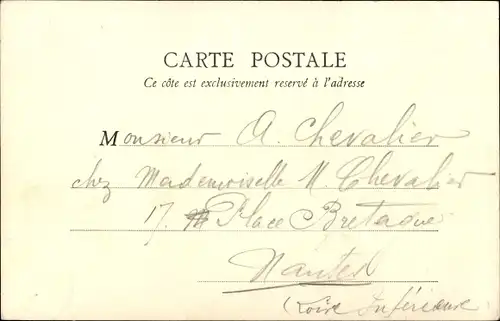 CARTE POSTALE
Ce côte est exclusivement reservé à l'adresse
Monsieur A. Chevalier
chez Mademoiselle M. Chevalier
17. Place Bretagne
Nantes
(Loire Inférieure)